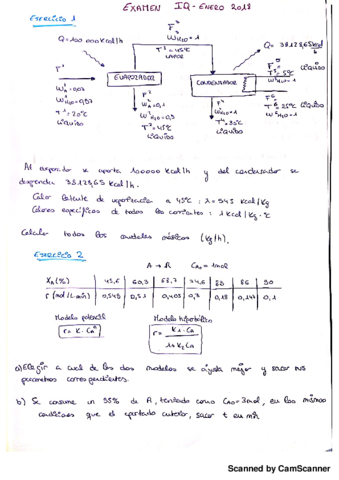 EXAMEN IQ - ENERO 2018
EJERCICIO 1
Q = 100 000 kcal/h
F³
W³H₂O = 1
T³ = 45ºC
VAPOR
Q = 
F¹
EVAPORADOR
CONDENSADOR
F⁵
T⁵ = 5ºC
LÍQUIDO
T¹ = 20ºC
LÍQUIDO
F²
T² = 45ºC
LÍQUIDO
F⁴
W⁴H₂O = 1
LÍQUIDO
F⁶
T⁶ = 25ºC
W⁶H₂O = 1
LÍQUIDO
Al evaporador se aporta 100000 kcal/h y del condensador se
desprenden kcal/h.
Calor latente de vaporización a 45ºC: λ = 545 kcal/kg
Calores específicos de todas las corrientes: 1 kcal/kg·ºC
Calcular todos los caudales másicos (kg/h).
EJERCICIO 2
A → R CA₀ = 1mol
XA (%) 45,6 60,3 74,6 86 90
r (mol/L·min) 0,545 0,51 0,403 0,3 0,18 0,1
Modelo potencial Modelo hiperbólico
r = K · CAⁿ
r = K₁ · CA / 1 + K₂ CA
a) Elegir a cual de los dos modelos se ajusta mejor y sacar sus
parámetros correspondientes.
b) Se consume un 55% de A, teniendo como CA₀ = 3mol, en las mismas
condiciones que el apartado anterior, sacar t en min
Scanned by CamScanner